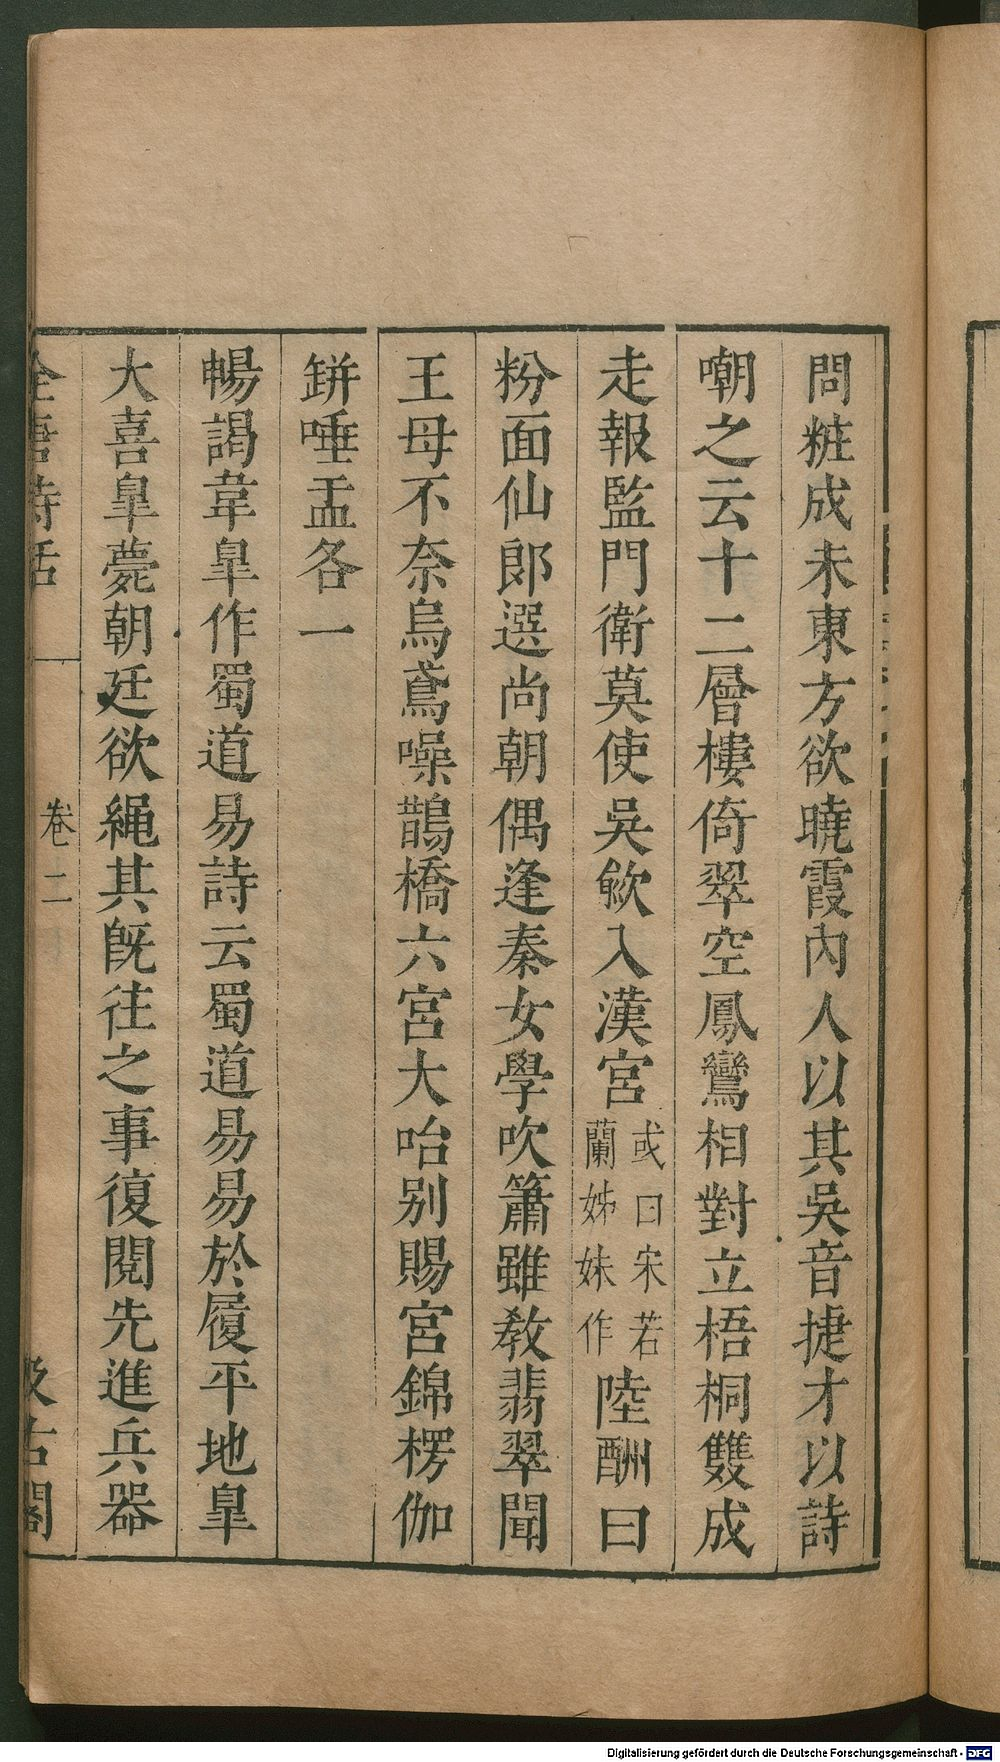 問粧成未東方欲曉霞內人以其吳音捷才以詩
嘲之云十二層樓倚翠空鳳鸞相對立梧桐雙成
走報監門衛莫使吳歈入漢宮或曰宋若蘭姊妹作陸酬曰
粉面仙郎選尚朝偶逢秦女學吹簫雖敎翡翠聞
王母不奈烏鳶噪鵲橋六宮大咍別賜宮錦楞伽
缾唾盂各一
暢謁韋臯作蜀道易詩云蜀道易易於履平地臯
大喜臯薨朝廷欲繩其旣往之事復閱先進兵器
全唐詩話 卷二 汲古閣
Digitalisierung gefördert durch die Deutsche Forschungsgemeinschaft - DFG